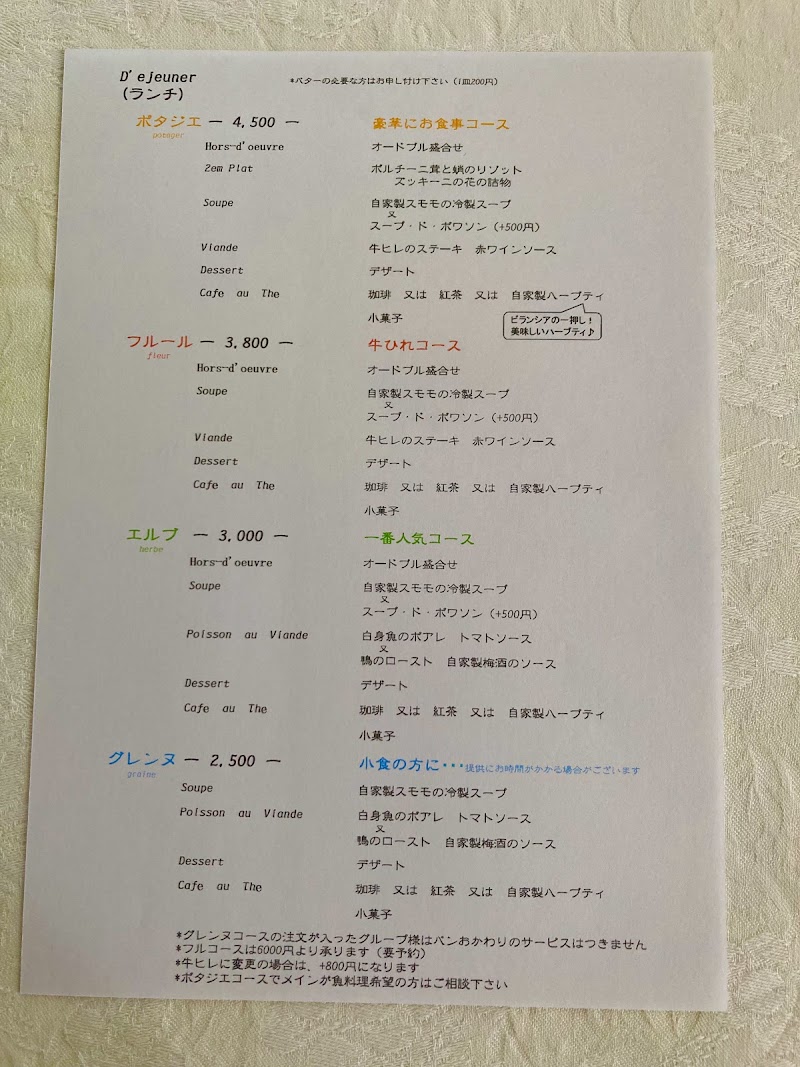 D'ejeuner
(ランチ)
*バターの必要な方はお申し付け下さい（1皿200円）
ポタジエ ― 4,500 ― 豪華にお食事コース
potager
Hors-d'oeuvre オードブル盛合せ
2em Plat ポルチーニ茸と鮹のリゾット
ズッキーニの花の詰物
Soupe 自家製スモモの冷製スープ
又
スープ・ド・ポワソン（+500円）
Viande 牛ヒレのステーキ 赤ワインソース
Dessert デザート
Cafe au The 珈琲 又は 紅茶 又は 自家製ハーブティ
小菓子
ビランシアの一押し！
美味しいハーブティ♪
フルール ― 3,800 ― 牛ひれコース
fleur
Hors-d'oeuvre オードブル盛合せ
Soupe 自家製スモモの冷製スープ
又
スープ・ド・ポワソン（+500円）
Viande 牛ヒレのステーキ 赤ワインソース
Dessert デザート
Cafe au The 珈琲 又は 紅茶 又は 自家製ハーブティ
小菓子
エルブ ― 3,000 ― 一番人気コース
herbe
Hors-d'oeuvre オードブル盛合せ
Soupe 自家製スモモの冷製スープ
又
スープ・ド・ポワソン（+500円）
Poisson au Viande 白身魚のポアレ トマトソース
又
鴨のロースト 自家製梅酒のソース
Dessert デザート
Cafe au The 珈琲 又は 紅茶 又は 自家製ハーブティ
小菓子
グレンヌ ― 2,500 ― 小食の方に・・・提供にお時間がかかる場合がございます
graine
Soupe 自家製スモモの冷製スープ
Poisson au Viande 白身魚のポアレ トマトソース
又
鴨のロースト 自家製梅酒のソース
Dessert デザート
Cafe au The 珈琲 又は 紅茶 又は 自家製ハーブティ
小菓子
*グレンヌコースの注文が入ったグループ様はパンおかわりのサービスはつきません
*フルコースは6000円より承ります（要予約）
*牛ヒレに変更の場合は、+800円になります
*ポタジエコースでメインが魚料理希望の方はご相談下さい